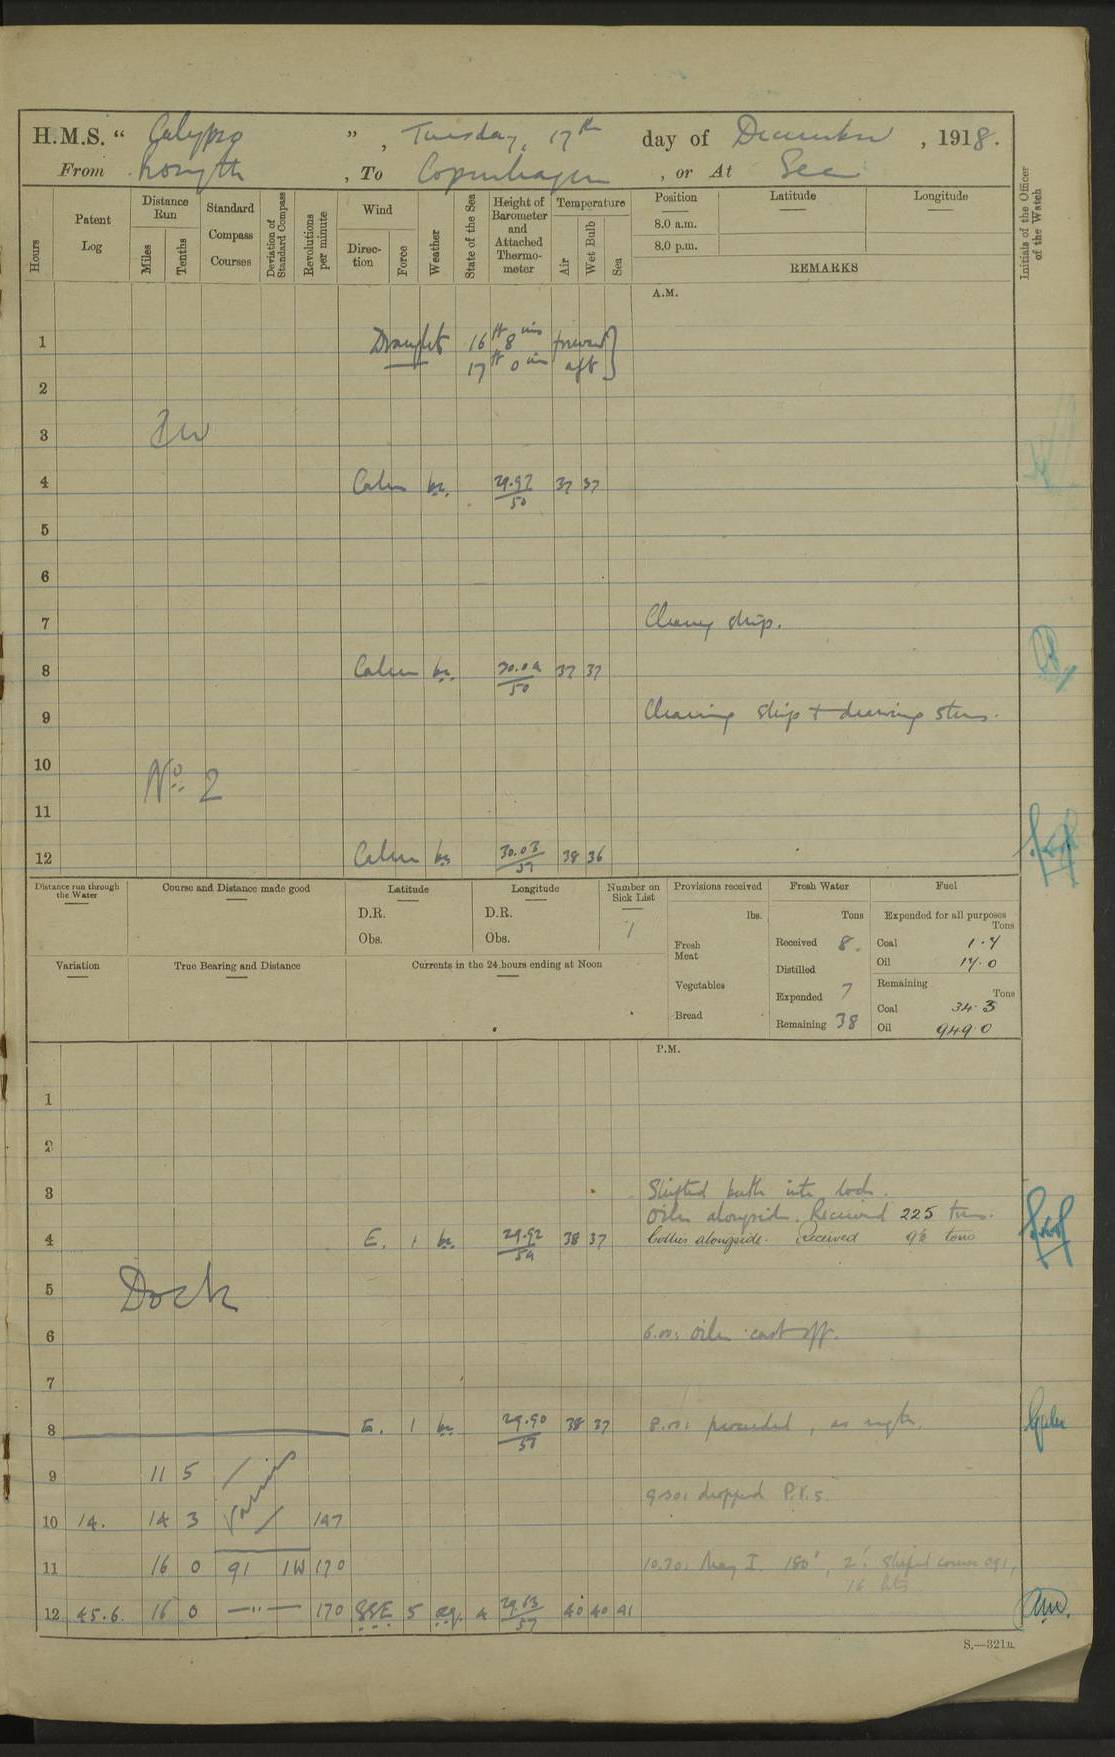 H.M.S. “ Calypso ” , Tuesday, 17th day of December , 1918.
From Rosyth , To Copenhagen , or At Sea
Hours
Patent Log
Distance Run
Miles
Tenths
Standard Compass Courses
Deviation of Standard Compass
Revolutions per minute
Wind
Direction
Force
Weather
State of the Sea
Height of Barometer and Attached Thermometer
Temperature
Air
Wet Bulb
Sea
Position
8.0 a.m.
8.0 p.m.
Latitude
Longitude
REMARKS
Initials of the Officer of the Watch
A.M.
1 Draught 16 ft 8 ins forward
17 ft 0 ins aft
2
3
4 Calm bc. 29.92/50 37 37
5
6
7 Cleaning ship.
8 Calm bc. 30.04/50 37 37
9 Cleaning ship + drawing stores.
10 No. 2
11
12 Calm bc 30.03/57 38 36
Distance run through the Water
Course and Distance made good
Latitude
D.R.
Obs.
Longitude
D.R.
Obs.
Number on Sick List
1
Provisions received
lbs.
Fresh Meat
Vegetables
Bread
Fresh Water
Tons
Received 8.
Distilled
Expended 7
Remaining 38
Fuel
Expended for all purposes
Tons
Coal 1.7
Oil 17.0
Remaining
Tons
Coal 34.3
Oil 949.0
Variation
True Bearing and Distance
Currents in the 24 hours ending at Noon
P.M.
1
2
3 Shifted berth into lock.
Oiler alongside. Received 225 tons.
4 E. 1 bc. 29.92/54 38 37 Collier alongside. Received 9½ tons
5 Dock
6 6.0: oiler cast off.
7
8 E. 1 bc. 29.90/57 38 37 8.0: proceeded, as reqte.
9 11 5 Various
9.30: dropped P.V.s.
10 14. 14 3 147
11 16 0 91 1W 170 10.30: May I. 180°, 2'. Shaped course 091,
16 kts
12 45.6. 16 0 —"— 170 SSE 5 og. 4 29.63/57 40 40 41
S.—321B.